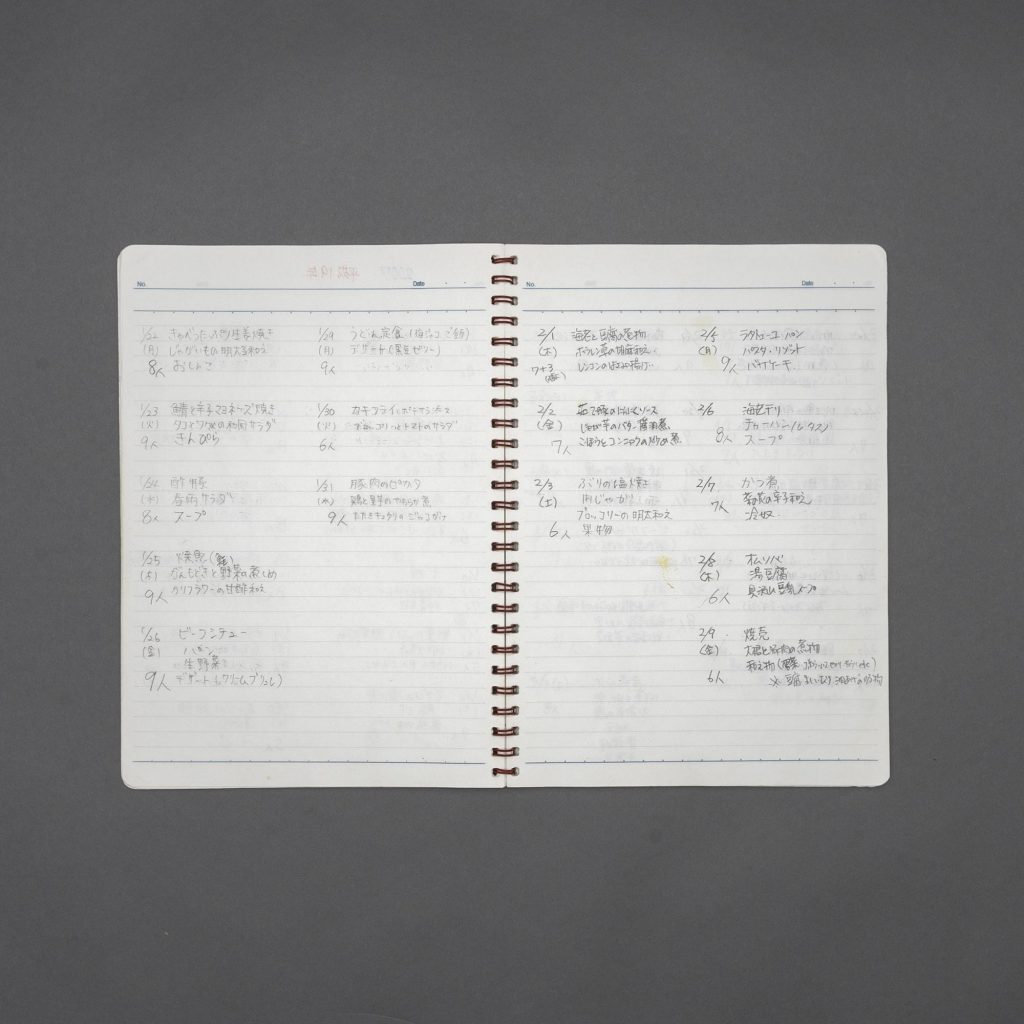 No.
Date
1/22
(月) じゃがいもの明太子和え
8人 おしんこ
1/23 鯖と辛子マヨネーズ焼き
(火) タコとワカメの和風サラダ
9人 きんぴら
1/24 酢豚
(水) 春雨サラダ
8人 スープ
1/25 焼魚(鮭)
(木) がんもどきと野菜の煮しめ
9人 カリフラワーの甘酢和え
1/26 ビーフシチュー
(金) パン
生野菜
9人 デザート(クリームブリュレ)
1/29 うどん定食(梅ジャコご飯)
(月) デザート(果缶ゼリー)
9人
1/30 カキフライとポテサラ
(火) ブロッコリーとトマトのサラダ
6人
1/31 豚肉のピカタ
(水) 鶏と里芋のやわらか煮
9人 たたきキュウリの
No.
Date
2/1 海老と豆腐の煮物
(木) ホウレン草の胡麻和え
7+3 レンコンのはさみ揚げ
2/2 茹で豚のにんにくソース
(金) じゃが芋のバター醤油煮
7人 ごぼうとコンニャクの煮
2/3 ぶりの塩焼き
(土) 肉じゃが
ブロッコリーの明太和え
6人 果物
2/5 ラタトゥーユ・パン
(月) パスタ・リゾット
9人 パンケーキ
2/6 海老チリ
チャーハン
8人 スープ
2/7 かつ煮
7人 菜の花の辛子和え
冷奴
2/8 オムソバ
(木) 湯豆腐
6人 具沢山豆乳スープ
2/9 焼売
(金) 大根と豚肉の煮物
6人 和え物